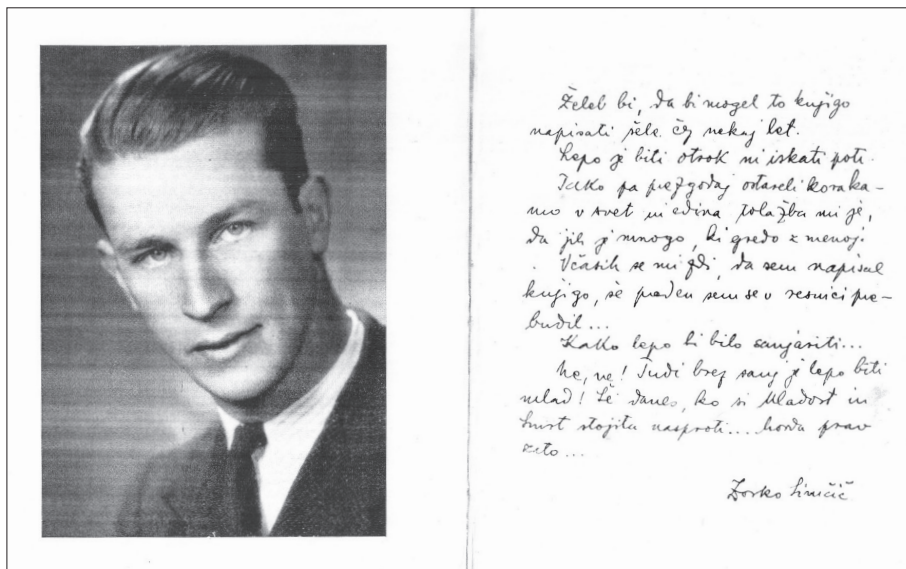 Želel bi, da bi mogel to knjigo
napisati šele čez nekaj let.
Lepo je biti otrok in iskati poti.
Tako pa prezgodaj ostareli koraka-
mo v svet in edina tolažba mi je,
da jih je mnogo, ki gredo z menoj.
Včasih se mi zdi, da sem napisal
knjigo, še preden sem se v resnici pre-
budil...
Kako lepo bi bilo sanjariti...
Ne, ne! Tudi brez sanj je lepo biti
mlad! Še danes, ko si Mladost in
Smrt stojita nasproti.... morda prav
zato...
Zorko Simčič